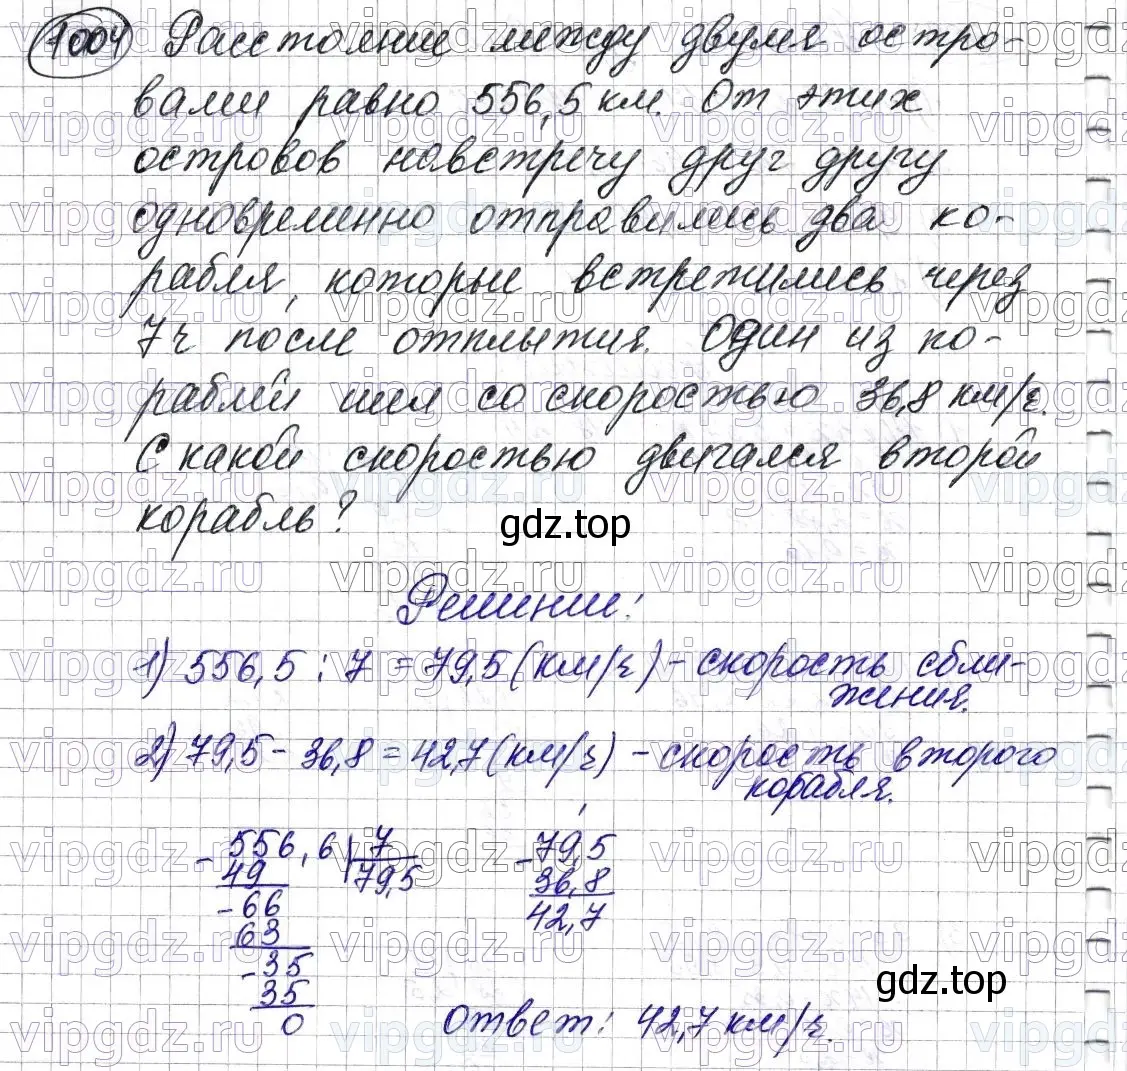 1004 Расстояние между двумя остро-
вами равно 556,5 км. От этих
островов навстречу друг другу
одновременно отправились два ко-
рабля, которые встретились через
7 ч после отплытия. Один из ко-
раблей шёл со скоростью 36,8 км/ч.
С какой скоростью двигался второй
корабль?
gdz.top
Решение:
1) 556,5 : 7 = 79,5 (км/ч) - скорость сбли-
жения.
2) 79,5 - 36,8 = 42,7 (км/ч) - скорость второго
корабля.
- 556,6 | 7
49 79,5
- 66
63
- 35
35
0
- 79,5
36,8
42,7
gdz.top
Ответ: 42,7 км/ч.
vipgdz.ru